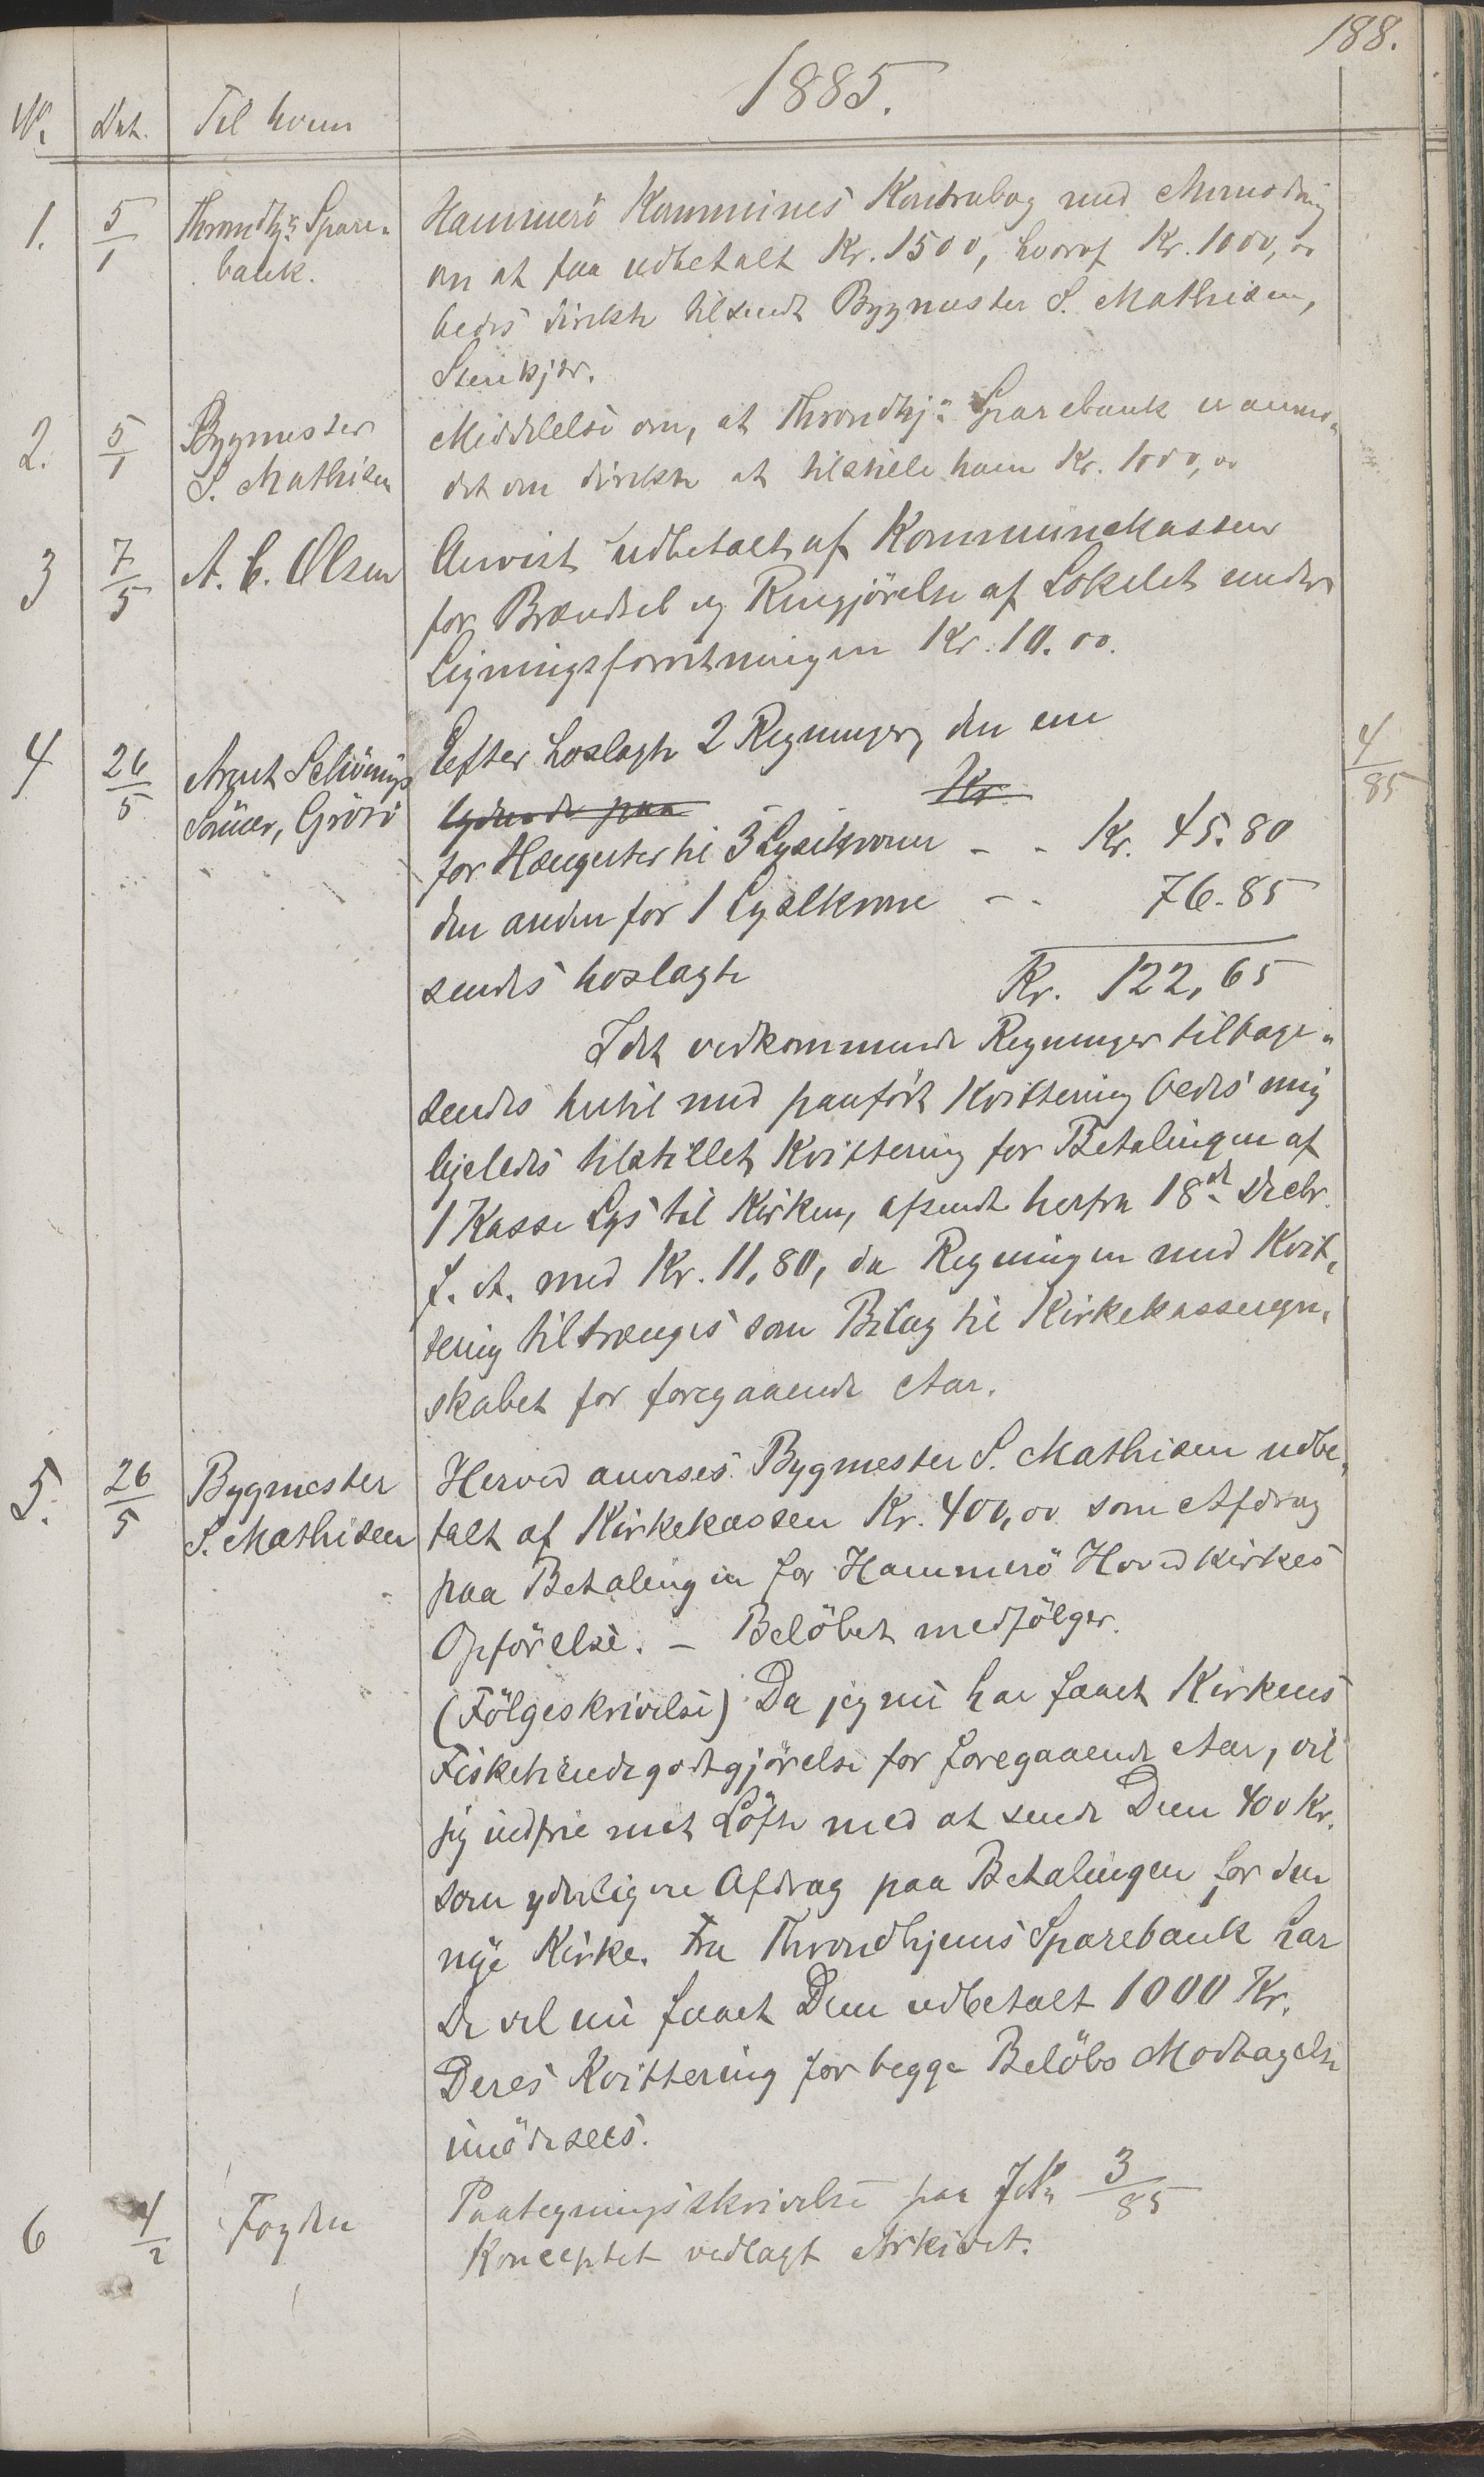 188.
1885.
No. Dat. Til hvem
1. 5/1 Throndhj.s Spare-
bank.
Hammerö Kommunes Kontrabog med Anmodning
om at faa udbetalt Kr. 1500, hvoraf Kr. 1000,00
bedes direkte tilsendt Bygmester S. Mathisen,
Stenkjær.
2. 5/1 Bygmester
S. Mathisen
Meddelelse om, at Throndhj.s Sparebank er anmo-
det om direkte at tilstille ham Kr. 1000,00
3 7/5 A. C. Olsen
Anvist udbetalt af Kommunekassen
for Brændsel og Rengjörelse af Lokalet under
Ligningsforretningen Kr. 10.00.
4 26/5 Arnt Schönings
Sönner, Grötö
Efter hoslagte 2 Regninger, den ene
lydende paa Kr.
for Hængester til 3 Lysekroner - - Kr. 45.80
den anden for 1 Lysekrone - - 76.85
sendes hoslagte Kr. 122,65
4/85
Idet vedkommende Regninger tilbage-
sendes hertil med paaført Kvittering bedes mig
ligeledes tilstillet Kvittering for Betalingen af
1 Kasse Lys til Kirken, afsendt herfra 18de Decbr.
f. A. med Kr. 11,80, da Regningen med Kvit-
tering tiltrænges som Bilag til Kirkekasseregn-
skabet for foregaaende Aar.
5. 26/5 Bygmester
S. Mathisen
Herved anvises Bygmester S. Mathisen udbe-
talt af Kirkekassen Kr. 400,00 som Afdrag
paa Betalingen for Hammerö Hovedkirkes
Opförelse. - Belöbet medfölger.
(Fölgeskrivelse) Da jeg nu har faaet Kirkens
Fisketiendegodtgjörelse for foregaaende Aar, vil
jeg indfrie mit Löfte med at sende Dem 400 Kr.
som yderligere Afdrag paa Betalingen for den
nye Kirke. Fra Throndhjems Sparebank har
De vel nu faaet Dem udbetalt 1000 Kr.
Deres Kvittering for begge Belöbs Modtagelse
imödesees.
6 4/2 Fogden
Paategningsskrivelse paa JNo 3/85
Konceptet vedlagt Arkivet.